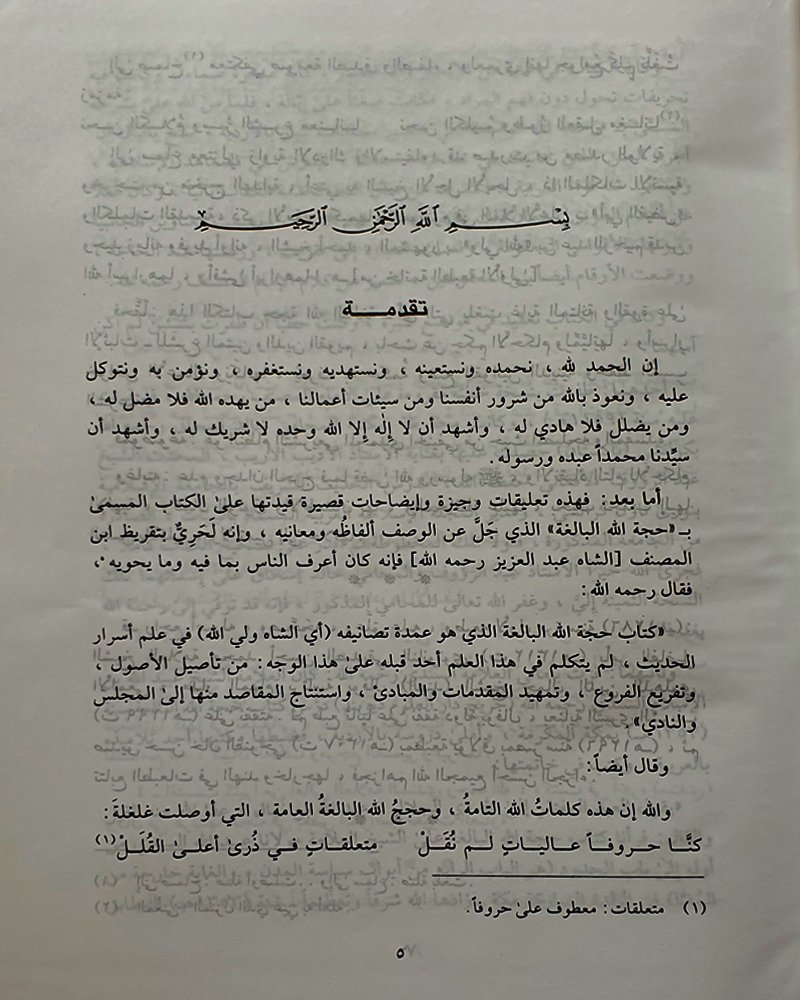 بِسْمِ اللَّهِ الرَّحْمَٰنِ الرَّحِيمِ
تقدمة
إن الحمد لله ، نحمده ونستعينه ، ونستهديه ونستغفره ، ونؤمن به ونتوكل
عليه ، ونعوذ بالله من شرور أنفسنا ومن سيئات أعمالنا ، من يهده الله فلا مضل له ،
ومن يضلل فلا هادي له ، وأشهد أن لا إلٰه إلا الله وحده لا شريك له ، وأشهد أن
سيِّدنا محمداً عبده ورسوله .
أما بعد : فهذه تعليقات وجيزة وإيضاحات قصيرة قيدتها علىٰ الكتاب المسمىٰ
بـ «حجة الله البالغة» الذي جَلَّ عن الوصف ألفاظُه ومعانيه ، وإنه لَحَرِيٌّ بتقريظ ابن
المصنف [الشاه عبد العزيز رحمه الله] فإنه كان أعرف الناس بما فيه وما يحويه ،
فقال رحمه الله :
«كتاب حجة الله البالغة الذي هو عمدة تصانيفه (أي الشاه ولي الله) في علم أسرار
الحديث ، لم يتكلم في هذا العلم أحد قبله علىٰ هذا الوجه : من تأصيل الأصول ،
وتفريع الفروع ، وتمهيد المقدمات والمبادئ ، واستنتاج المقاصد منها إلىٰ المجلس
والنادي» .
وقال أيضاً :
والله إن هذه كلماتُ الله التامةُ ، وحججُ الله البالغةُ العامة ، التي أوصلت غلغلةَ :
كنَّا حروفاً عاليات لم نُقَلْ متعلقاتٍ في ذُرىٰ أعلىٰ القُلَلْ(١)
(١) متعلقات : معطوف علىٰ حروفاً .
٥